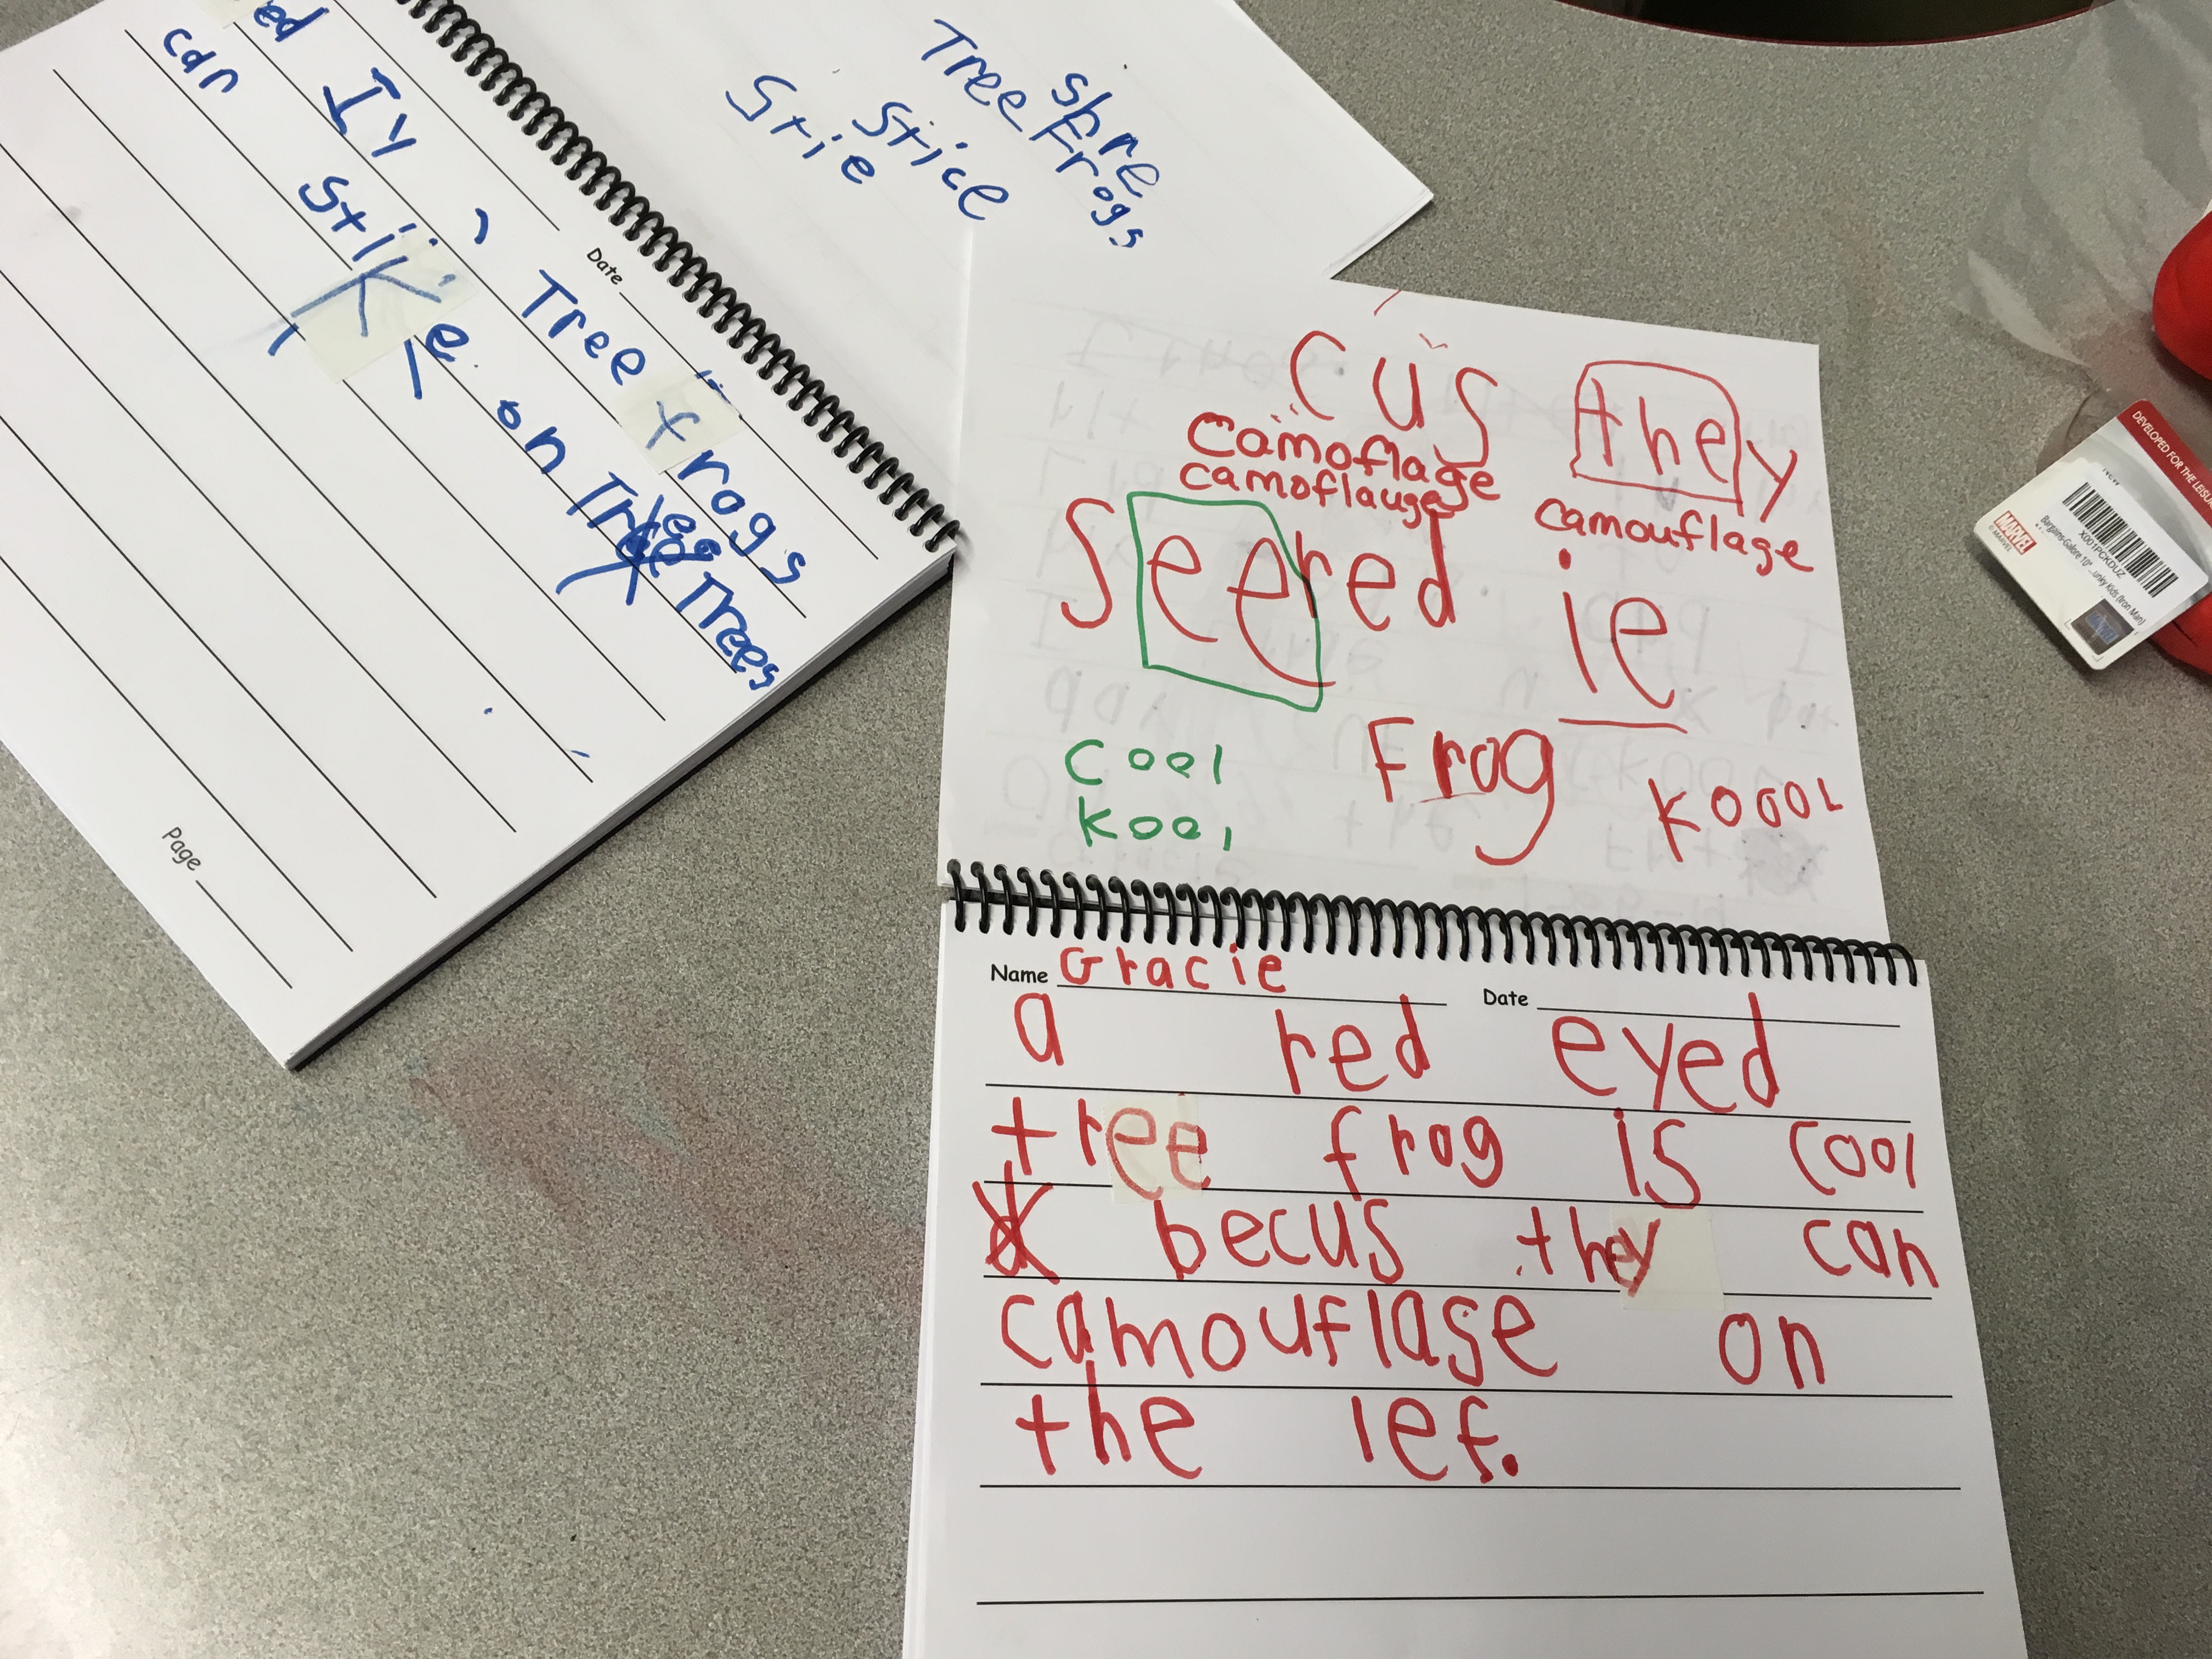 Tree Frogs
shre
Stice
Stie
ed
can
Iy
Stike on Tree Trees
Yes
Date
Tree frogs
Page
cus they
camoflage
camoflauge
camouflage
Seered ie
Cool
Kool
Frog
Koool
Name Gracie Date
a red eyed
tree frog is cool
becus they can
camouflage on
the lef.
DEVELOPED FOR THE LEISU
MARVEL
X001PCKDUZ
Bargains-Galore 10" ...unky Kids (Iron Man)
New